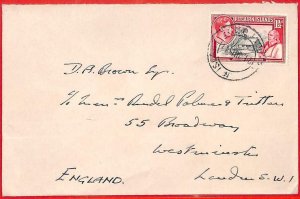 PITCAIRN ISLANDS
1½
D.A. Brown Esq.
c/o Messrs Rendel Palmer & Tritton
55 Broadway
Westminster
London S.W.1
ENGLAND.